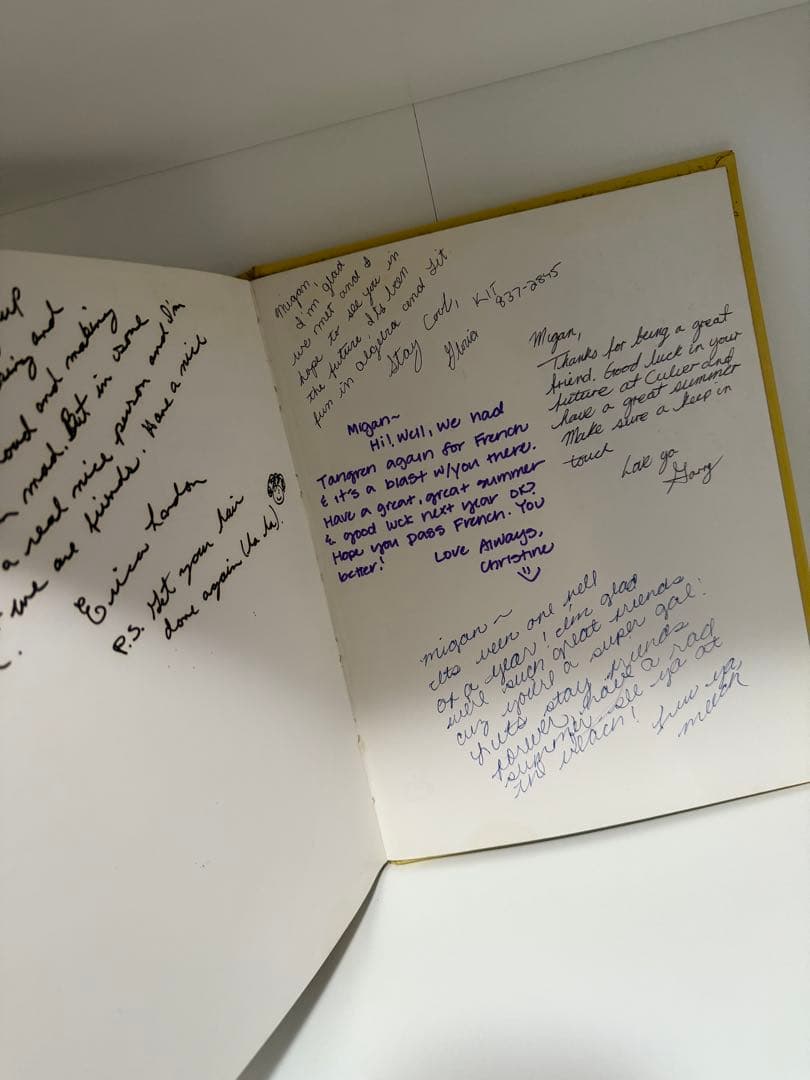 up
and
loud and making
mad. But in some
a real nice person and I'm
we are friends. Have a nice
Erica London
P.S. Get your hair
done again (ha ha)!
Migan,
I'm glad
we met and I
hope to see you in
the future It's been
fun in algebra and Lit
Stay Cool, KIT
Gloria 837-2845
Migan,
Thanks for being a great
friend. Good luck in your
future at Culver and
have a great summer
Make sure a keep in
touch
Love ya
Gary
Migan~
Hi! Well, we had
Tangren again for French
& it's a blast w/you there.
Have a great, great summer
& good luck next year OK?
Hope you pass French. You
better!
Love Always,
Christine
migan~
Its been one hell
of a year! I'm glad
we're such great friends
cuz you're a super gal!
Let's stay friends
forever, have a rad
summer - see ya at
the beach!
Luv ya